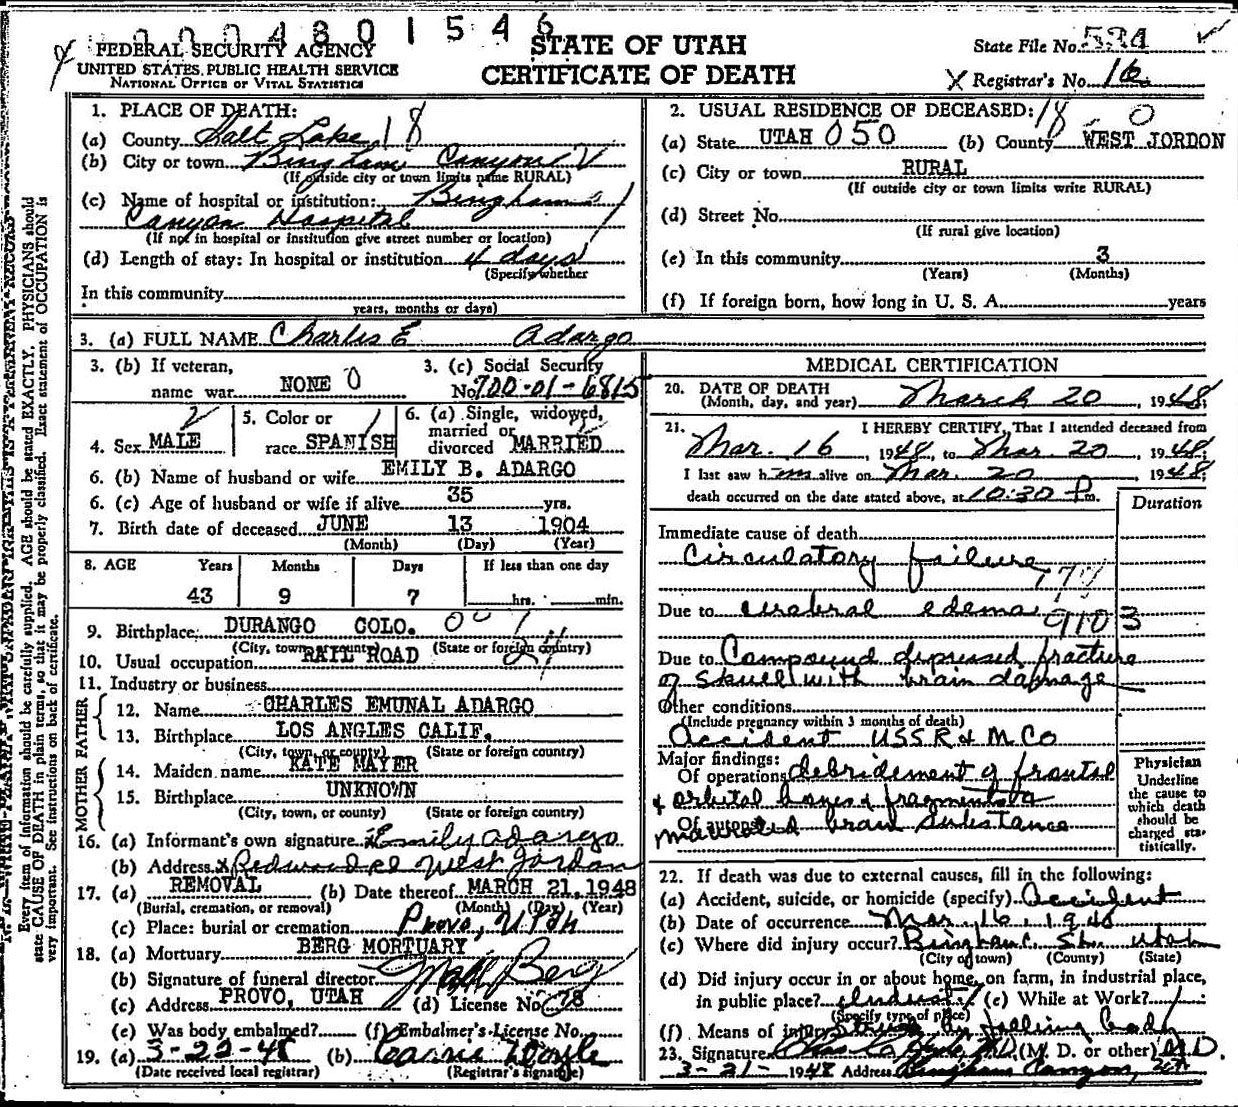 0004801546
FEDERAL SECURITY AGENCY
UNITED STATES PUBLIC HEALTH SERVICE
NATIONAL OFFICE OF VITAL STATISTICS
STATE OF UTAH
CERTIFICATE OF DEATH
State File No. 534
X Registrar's No. 16
1. PLACE OF DEATH:
(a) County Salt Lake 18
(b) City or town Bingham Canyon
(If outside city or town limits name RURAL)
(c) Name of hospital or institution: Bingham
Canyon Hospital
(If not in hospital or institution give street number or location)
(d) Length of stay: In hospital or institution 4 days
(Specify whether
In this community
years, months or days)
2. USUAL RESIDENCE OF DECEASED: 18 0
(a) State UTAH 050 (b) County WEST JORDON
(c) City or town RURAL
(If outside city or town limits write RURAL)
(d) Street No.
(If rural give location)
(e) In this community 3
(Years) (Months)
(f) If foreign born, how long in U. S. A. years
3. (a) FULL NAME Charles E Adargo
3. (b) If veteran,
name war NONE 0
3. (c) Social Security
No. 700-01-6815
4. Sex MALE
5. Color or
race SPANISH
6. (a) Single, widowed,
married or
divorced MARRIED
6. (b) Name of husband or wife EMILY B. ADARGO
6. (c) Age of husband or wife if alive 35 yrs.
7. Birth date of deceased JUNE 13 1904
(Month) (Day) (Year)
8. AGE Years Months Days If less than one day
43 9 7 hrs. min.
9. Birthplace: DURANGO COLO.
(City, town, county) (State or foreign country)
10. Usual occupation RAIL ROAD
11. Industry or business
FATHER
12. Name CHARLES EMUNAL ADARGO
13. Birthplace LOS ANGLES CALIF.
(City, town, or county) (State or foreign country)
MOTHER
14. Maiden name KATE MAYER
15. Birthplace UNKNOWN
(City, town, or county) (State or foreign country)
16. (a) Informant's own signature Emily Adargo
(b) Address Redwood Rd West Jordan
17. (a) REMOVAL (b) Date thereof MARCH 21, 1948
(Burial, cremation, or removal) (Month) (Day) (Year)
(c) Place: burial or cremation Provo, Utah
18. (a) Mortuary BERG MORTUARY
(b) Signature of funeral director Berg
(c) Address PROVO, UTAH (d) License No. 78
(e) Was body embalmed? (f) Embalmer's License No.
19. (a) 3-22-48 (b)
(Date received local registrar) (Registrar's signature)
MEDICAL CERTIFICATION
20. DATE OF DEATH
(Month, day, and year) March 20, 1948
21. I HEREBY CERTIFY, That I attended deceased from
Mar. 16, 1948, to Mar. 20, 1948;
I last saw him alive on Mar. 20 1948;
death occurred on the date stated above, at 10:30 P.m.
Duration
Immediate cause of death
Circulatory failure
Due to cerebral edema
Due to Compound depressed fracture
of skull with brain damage
Other conditions
(Include pregnancy within 3 months of death)
Accident USSR & M Co
Major findings:
Of operations debridement of frontal
& orbital bones & fragments &
Of autopsy
macerated brain substance
Physician
Underline
the cause to
which death
should be
charged sta-
tistically.
22. If death was due to external causes, fill in the following:
(a) Accident, suicide, or homicide (specify) Accident
(b) Date of occurrence Mar. 16, 1948
(c) Where did injury occur? Bingham C. S.L. Utah
(City or town) (County) (State)
(d) Did injury occur in or about home, on farm, in industrial place,
in public place? (e) While at Work?
(Specify type of place)
(f) Means of injury Struck by falling
23. Signature M.D. (M. D. or other) M.D.
3-21- 1948 Address Bingham Canyon, Utah
Every item of information should be carefully supplied. AGE should be stated EXACTLY. PHYSICIANS should
state CAUSE OF DEATH in plain terms, so that it may be properly classified. Exact statement of OCCUPATION is
very important. See instructions on back of certificate.